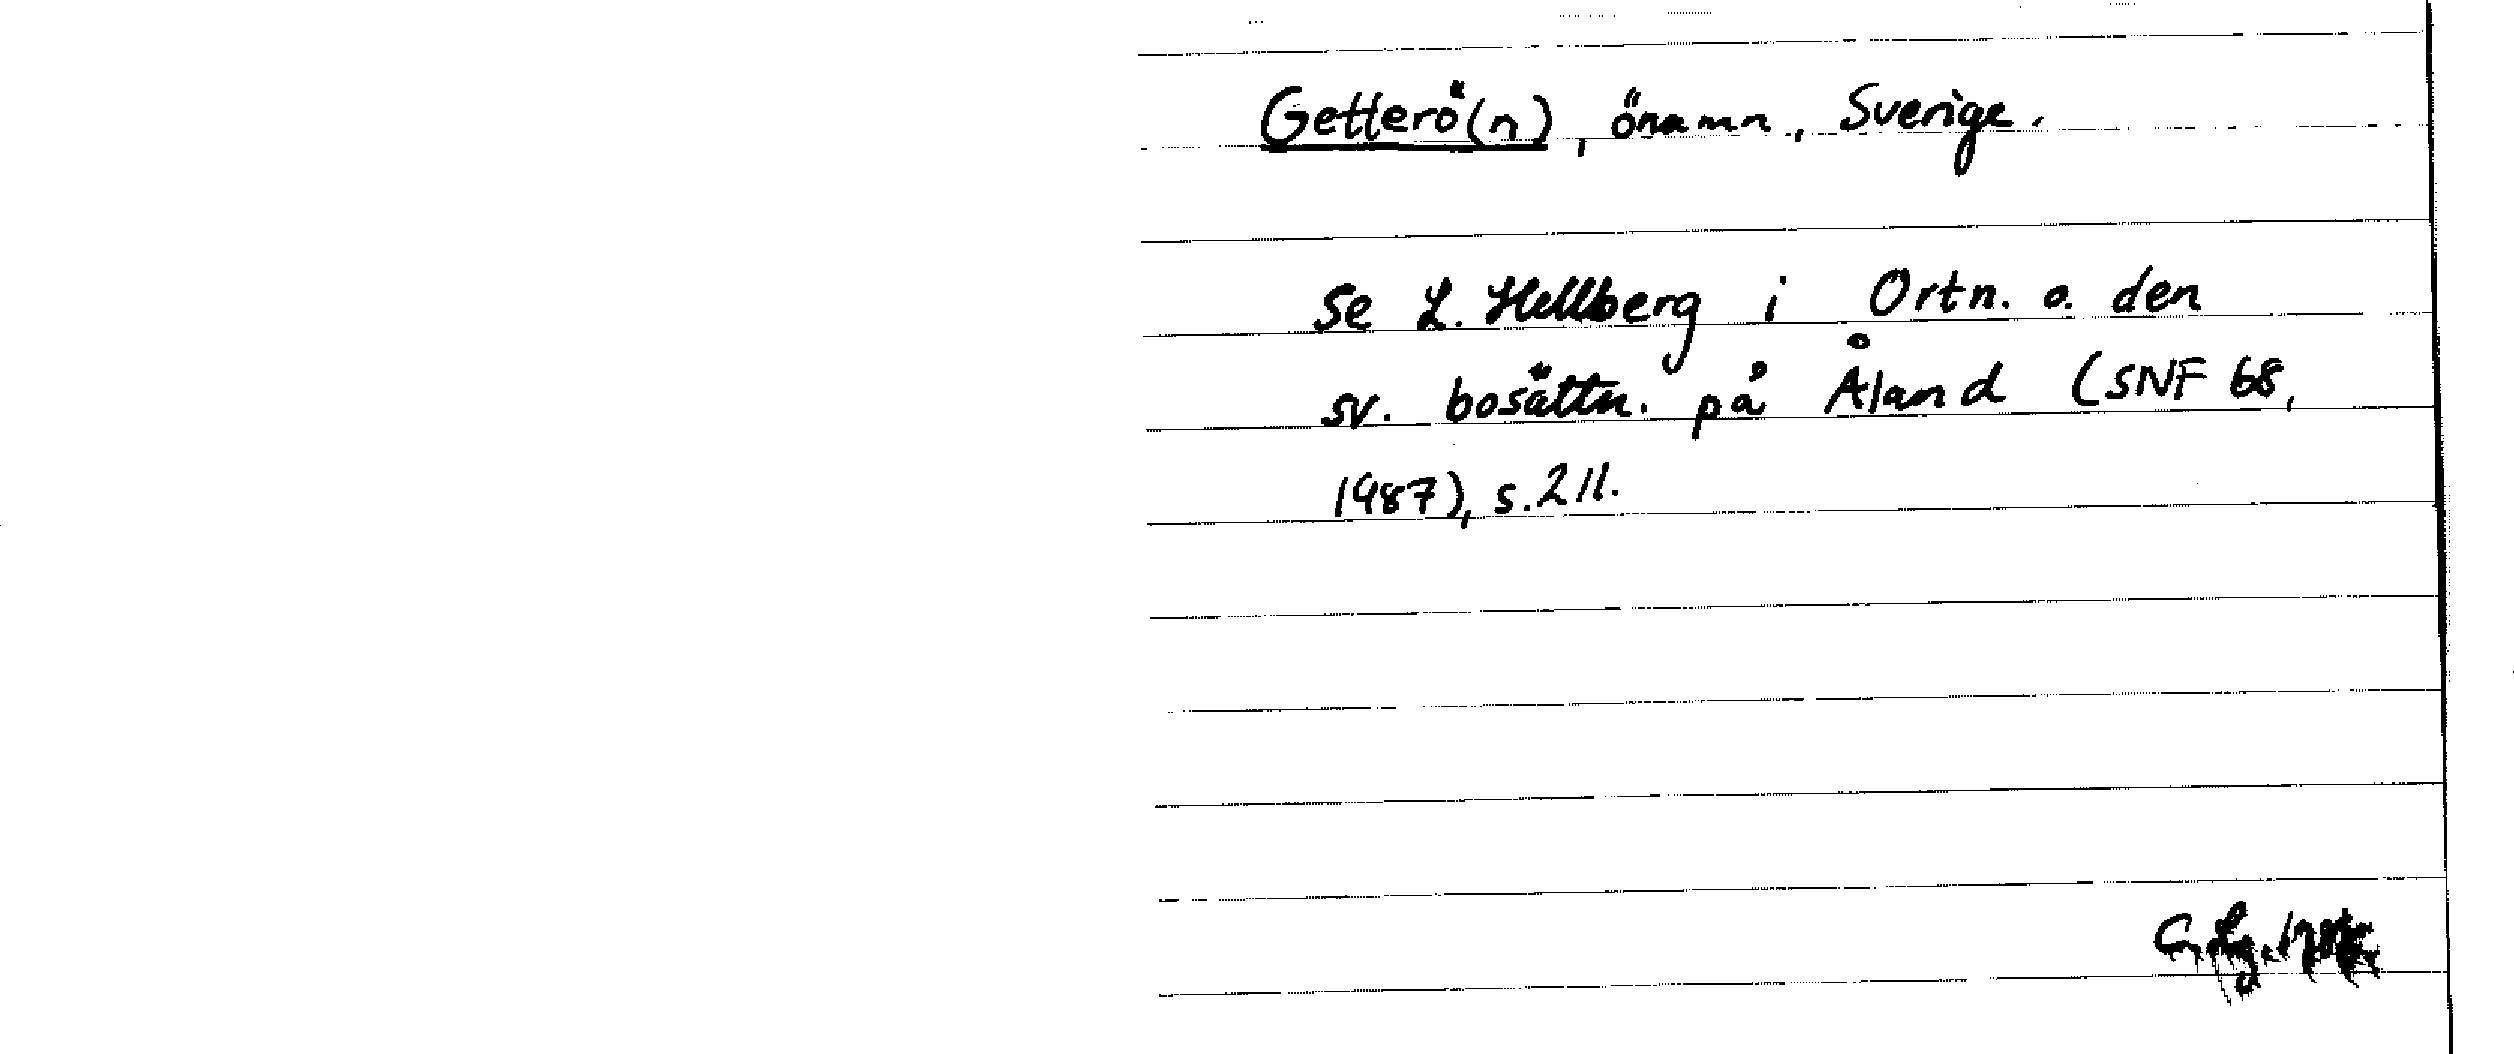 Getterö(n), önamn, Sverige.
Se L. Hellberg i Ortn. o. den
sv. bosättn. på Åland (SNF 68,
1987), s. 211.